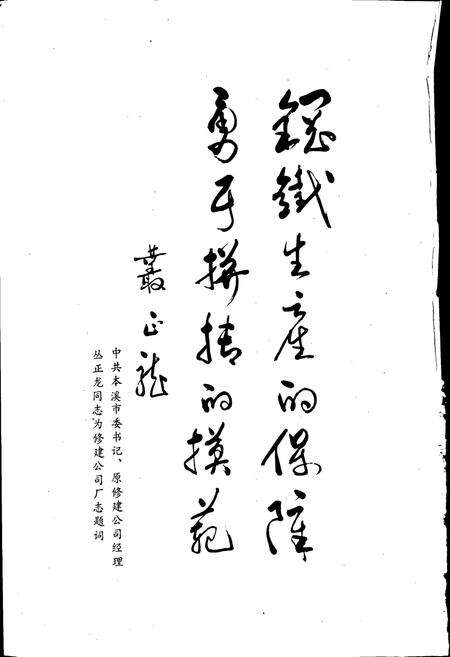 鋼鐵生産的保障
勇于拼搏的摸范
叢正龍
中共本溪市委书记、原修建公司经理
丛正龙同志为修建公司厂志题词